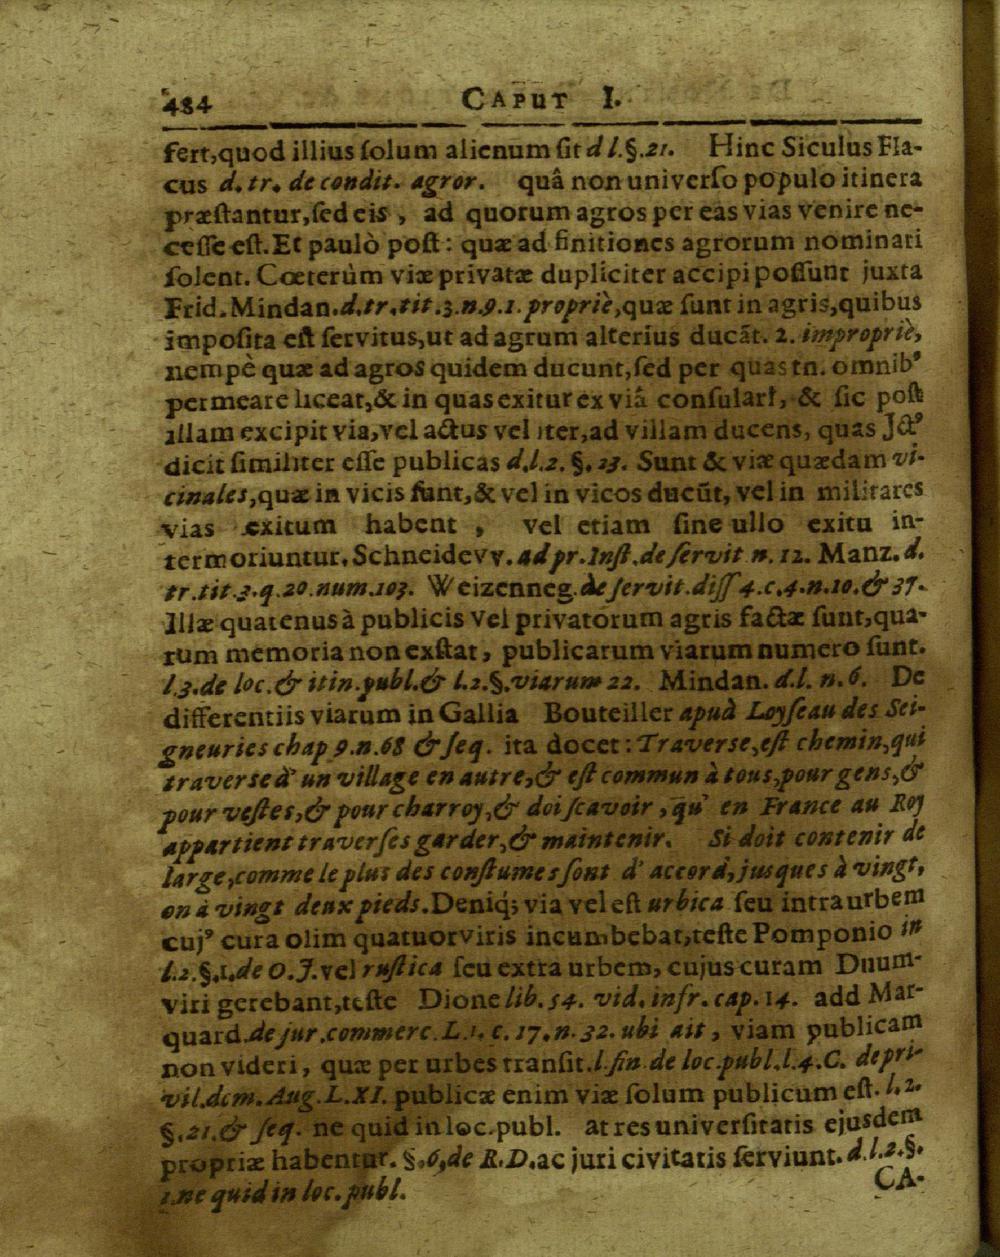 484 CAPUT I.
fert,quod illius ſolum alienum ſit d l.§.21. Hinc Siculus Fla-
cus d. tr. de condit. agror. quâ non univerſo populo itinera
præſtantur,ſed eis , ad quorum agros per eas vias venire ne-
ceſſe eſt.Et paulò poſt: quæ ad finitiones agrorum nominari
ſolent. Cœterùm viæ privatæ dupliciter accipi poſſunt juxta
Frid. Mindan.d.tr.tit.3.n.9.1. propriè,quæ ſunt in agris,quibus
impoſita eſt ſervitus,ut ad agrum alterius ducāt. 2. impropriè,
nempè quæ ad agros quidem ducunt,ſed per quas tn. omnibꝰ
permeare liceat,& in quas exitur ex viâ conſulari, & ſic poſt
illam excipit via,vel actus vel iter,ad villam ducens, quas Jctꝰ
dicit ſimiliter eſſe publicas d.l.2. §. 23. Sunt & viæ quædam vi-
cinales,quæ in vicis ſunt,& vel in vicos ducūt, vel in militares
vias exitum habent , vel etiam ſine ullo exitu in-
termoriuntur. Schneidevv. ad pr. Inſt. de ſervit n. 12. Manz. d.
tr.tit.3.q.20.num.103. Weizenneg.de ſervit.diſſ 4.c.4.n.10.& 37.
Illæ quatenus à publicis vel privatorum agris factæ ſunt,qua-
rum memoria non exſtat, publicarum viarum numero ſunt.
l.3.de loc.& itin.publ.& l.2.§.viarum 22. Mindan. d.l. n. 6. De
differentiis viarum in Gallia Bouteiller apud Loyſeau des Sei-
gneuries chap 9.n.68 & ſeq. ita docet: Traverſe,eſt chemin,qui
traverse d' un village en autre,& eſt commun à tous,pour gens,&
pour veſtes,& pour charroy,& doi ſcavoir , qu' en France au Roy
appartient traverſes garder,& maintenir. Si doit contenir de
large,comme le plus des conſtumes ſont d' accord,jusques à vingt,
on à vingt deux pieds.Deniq; via vel eſt urbica ſeu intra urbem
cujꝰ cura olim quatuorviris incumbebat,teſte Pomponio in
l.2.§.1.de O.J.vel ruſtica ſeu extra urbem, cujus curam Duum-
viri gerebant,teſte Dione lib. 54. vid. infr. cap. 14. add Mar-
quard.de jur.commerc.L.1. c. 17. n. 32. ubi ait , viam publicam
non videri, quæ per urbes tranſit.l.fin de loc.publ.l.4.C. de pri-
vil.dom. Aug. L.XI. publicæ enim viæ ſolum publicum eſt. l.2.
§.21.& ſeq. ne quid in loc.publ. at res univerſitatis ejusdem
propriæ habentur. §.6,de R.D.ac juri civitatis ſerviunt. d.l.2.§.
1.ne quid in loc. publ.
CA-